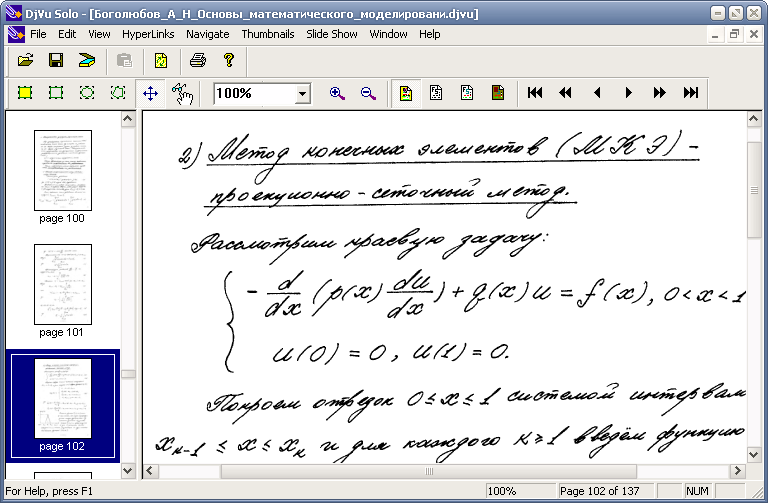 DjVu Solo - [Боголюбов_А_Н_Основы_математического_моделировани.djvu]
File Edit View HyperLinks Navigate Thumbnails Slide Show Window Help
100%
page 100
page 101
page 102
2) Метод конечных элементов (МКЭ) -
проекционно-сеточный метод.
Рассмотрим краевую задачу:
- d/dx (p(x) du/dx) + q(x) u = f(x), 0 < x < 1
u(0) = 0, u(1) = 0.
Покроем отрезок 0 ≤ x ≤ 1 системой интервам
x_{k-1} ≤ x ≤ x_k и для каждого k ≥ 1 введём функцию
For Help, press F1
100%
Page 102 of 137
NUM